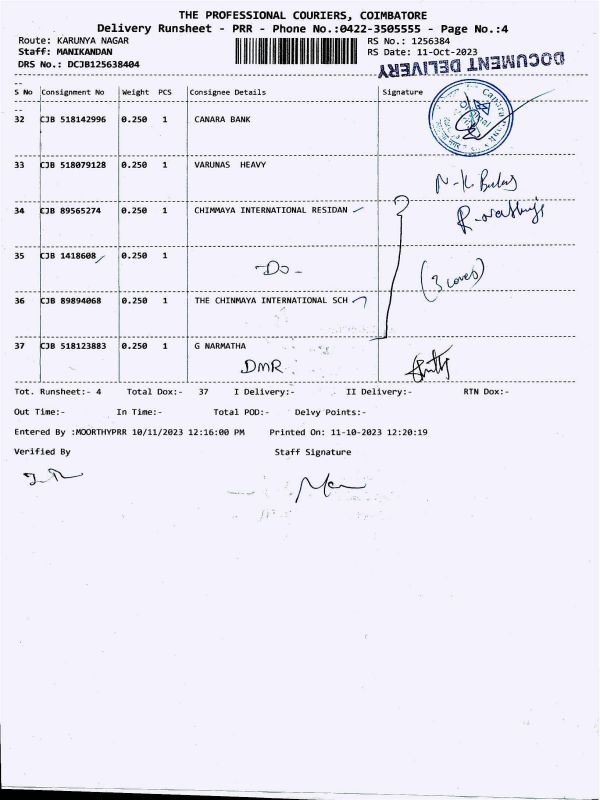 THE PROFESSIONAL COURIERS, COIMBATORE
Delivery Runsheet - PRR - Phone No.:0422-3505555 - Page No.:4
Route: KARUNYA NAGAR RS No.: 1256384
Staff: MANIKANDAN RS Date: 11-Oct-2023
DRS No.: DCJB125638404 DOCUMENT DELIVERY
S No Consignment No Weight PCS Consignee Details Signature
32 CJB 518142996 0.250 1 CANARA BANK
33 CJB 518079128 0.250 1 VARUNAS HEAVY
34 CJB 89565274 0.250 1 CHIMMAYA INTERNATIONAL RESIDAN
35 CJB 1418608 0.250 1
-Do- (3 covers)
36 CJB 89894068 0.250 1 THE CHINMAYA INTERNATIONAL SCH
37 CJB 518123883 0.250 1 G NARMATHA
DMR
Tot. Runsheet:- 4 Total Dox:- 37 I Delivery:- II Delivery:- RTN Dox:-
Out Time:- In Time:- Total POD:- Delvy Points:-
Entered By :MOORTHYPRR 10/11/2023 12:16:00 PM Printed On: 11-10-2023 12:20:19
Verified By Staff Signature